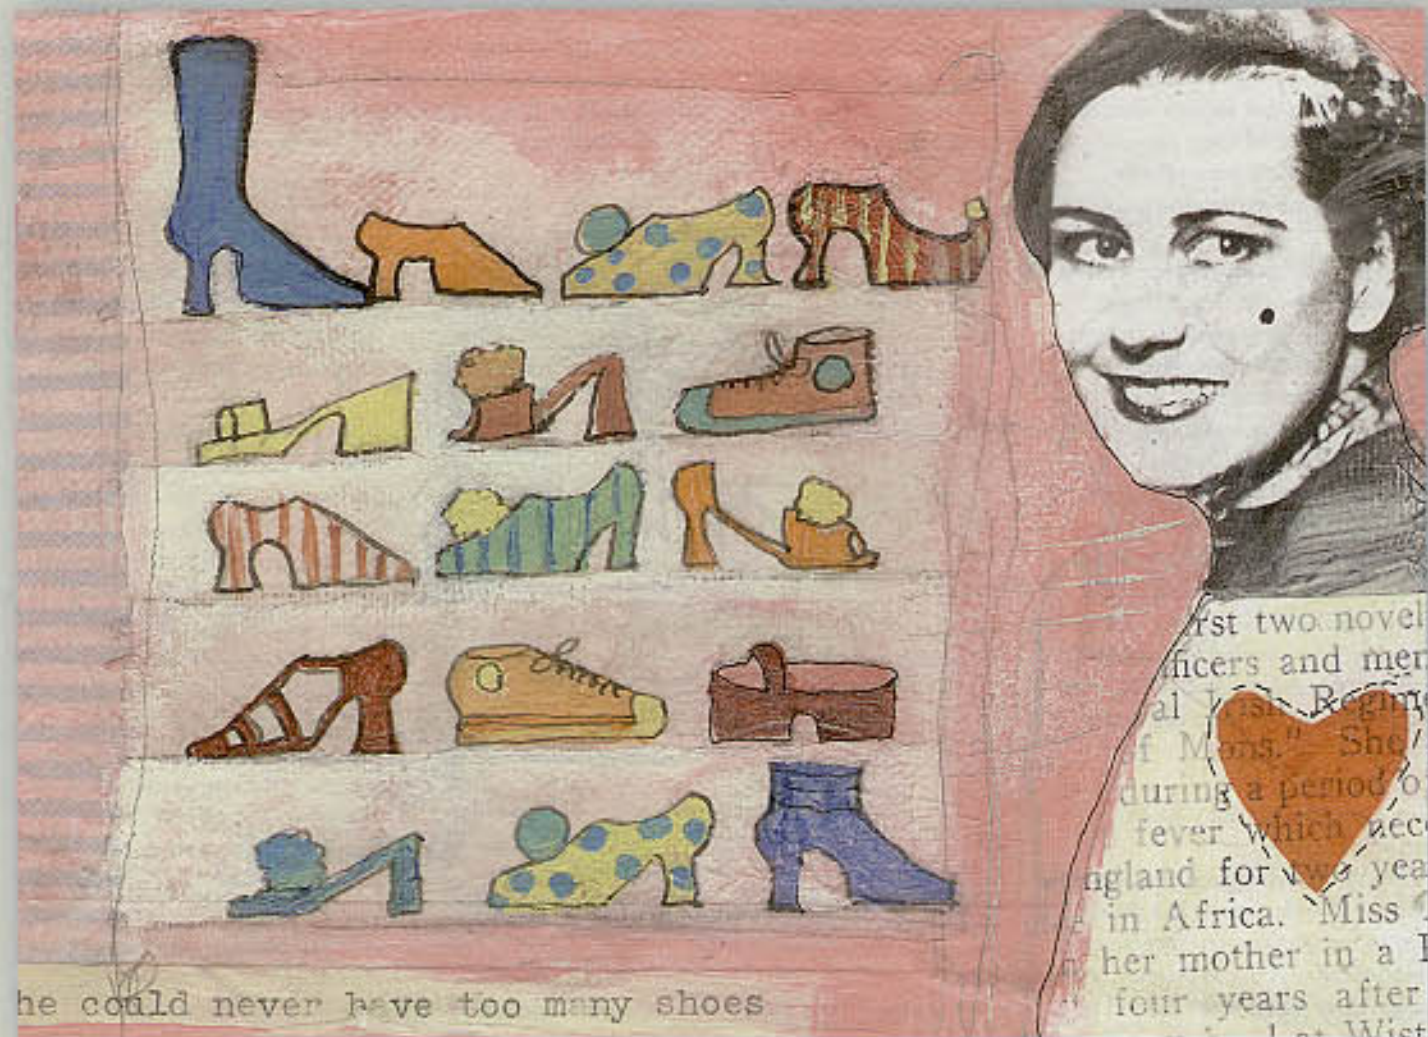 he could never have too many shoes
rst two novel
ficers and mer
al Irish Regim
f Mons." She
during a period o
fever which nec
ngland for two yea
in Africa. Miss
her mother in a
four years after
at Wist